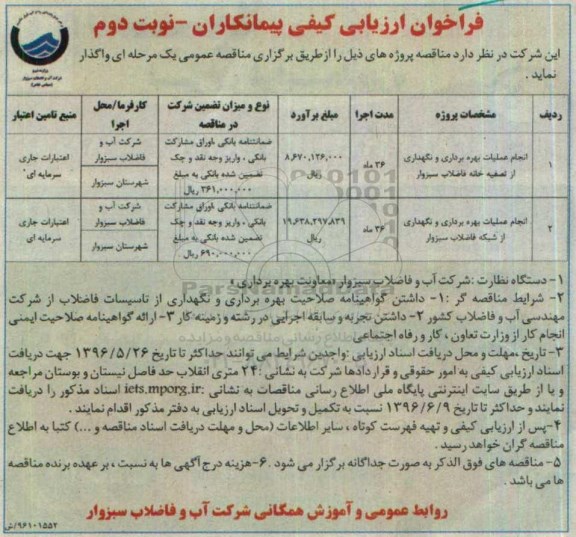 فراخوان ارزیابی کیفی پیمانکاران -نوبت دوم
این شرکت در نظر دارد مناقصه پروژه های ذیل را از طریق برگزاری مناقصه عمومی یک مرحله ای واگذار
نماید .
ردیف | مشخصات پروژه | مدت اجرا | مبلغ برآورد | نوع و میزان تضمین شرکت در مناقصه | کارفرما/محل اجرا | منبع تامین اعتبار
۱ | انجام عملیات بهره برداری و نگهداری از تصفیه خانه فاضلاب سبزوار | ۳۶ ماه | ۸,۶۷۰,۱۲۶,۰۰۰ ریال | ضمانتنامه بانکی ،اوراق مشارکت بانکی ، واریز وجه نقد و چک تضمین شده بانکی به مبلغ ۳۶۱,۰۰۰,۰۰۰ ریال | شرکت آب و فاضلاب سبزوار شهرستان سبزوار | اعتبارات جاری سرمایه ای
۲ | انجام عملیات بهره برداری و نگهداری از شبکه فاضلاب سبزوار | ۳۶ ماه | ۱۹,۶۳۸,۳۹۷,۸۳۹ ریال | ضمانتنامه بانکی ،اوراق مشارکت بانکی ، واریز وجه نقد و چک تضمین شده بانکی به مبلغ ۶۹۰,۰۰۰,۰۰۰ ریال | شرکت آب و فاضلاب سبزوار شهرستان سبزوار | اعتبارات جاری سرمایه ای
۱- دستگاه نظارت :شرکت آب و فاضلاب سبزوار (معاونت بهره برداری)
۲- شرایط مناقصه گر :۱- داشتن گواهینامه صلاحیت بهره برداری و نگهداری از تاسیسات فاضلاب از شرکت
مهندسی آب و فاضلاب کشور ۲- داشتن تجربه و سابقه اجرایی در رشته و زمینه کار ۳- ارائه گواهینامه صلاحیت ایمنی
انجام کار از وزارت تعاون ، کار و رفاه اجتماعی
۳- تاریخ ،مهلت و محل دریافت اسناد ارزیابی :واجدین شرایط می توانند حداکثر تا تاریخ ۱۳۹۶/۵/۲۶ جهت دریافت
اسناد ارزیابی کیفی به امور حقوقی و قراردادها شرکت به نشانی :۲۴ متری انقلاب حد فاصل نیستان و بوستان مراجعه
و یا از طریق سایت اینترنتی پایگاه ملی اطلاع رسانی مناقصات به نشانی :iets.mporg.ir اسناد مذکور را دریافت
نمایند و حداکثر تا تاریخ ۱۳۹۶/۶/۹ نسبت به تکمیل و تحویل اسناد ارزیابی به دفتر مذکور اقدام نمایند .
۴-پس از ارزیابی کیفی و تهیه فهرست کوتاه ، سایر اطلاعات (محل و مهلت دریافت اسناد مناقصه و ...) کتبا به اطلاع
مناقصه گران خواهد رسید .
۵- مناقصه های فوق الذکر به صورت جداگانه برگزار می شود .۶-هزینه درج آگهی ها به نسبت ، بر عهده برنده مناقصه
ها می باشد .
روابط عمومی و آموزش همگانی شرکت آب و فاضلاب سبزوار
۹۶۱۰۱۵۵۲/ش